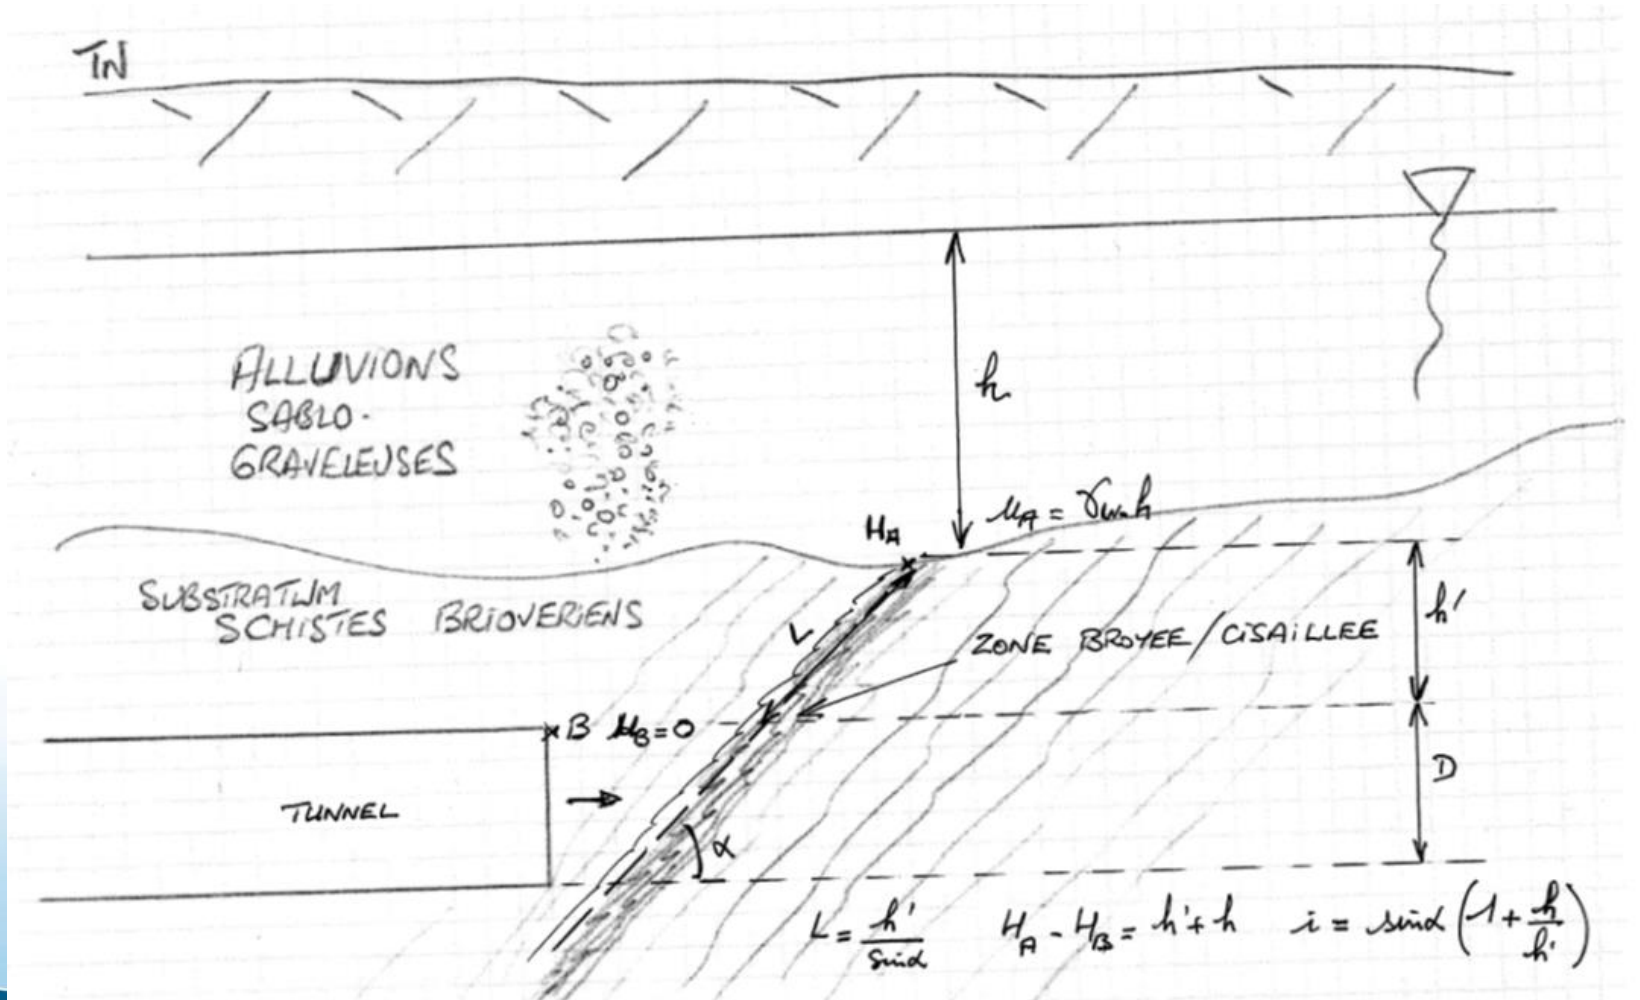 TN
h
ALLUVIONS
SABLO-
GRAVELEUSES
H_A
u_A = γ_w.h
SUBSTRATUM
SCHISTES BRIOVERIENS
L
ZONE BROYEE/CISAILLEE
h'
B u_B = 0
TUNNEL
D
α
L = h'/sinα   H_A - H_B = h' + h   i = sinα (1 + h/h')